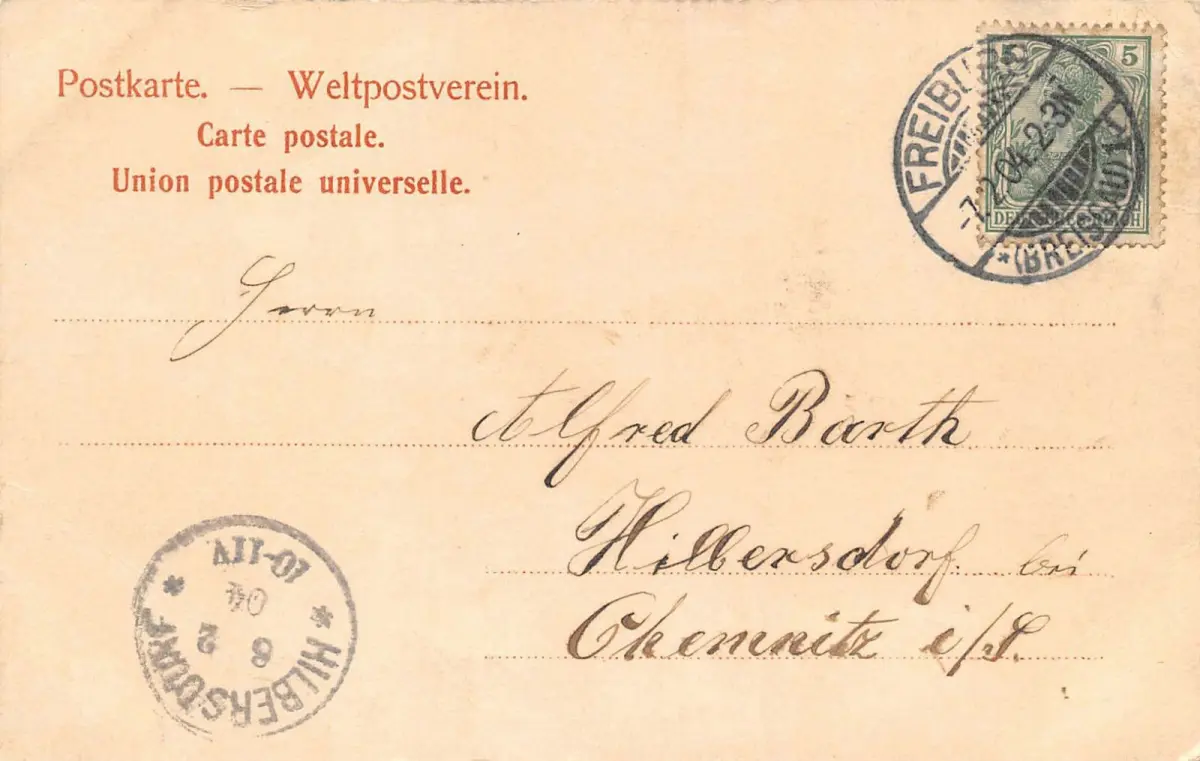 Postkarte. — Weltpostverein.
Carte postale.
Union postale universelle.
5 5
DEUTSCHES REICH
FREIBURG
-7.2.04.2-3N
*(BREISGAU)1.
Herrn
Alfred Barth
Hilbersdorf bei
Chemnitz i/S.
* HILBERSDORF *
9 2
04
10-11V